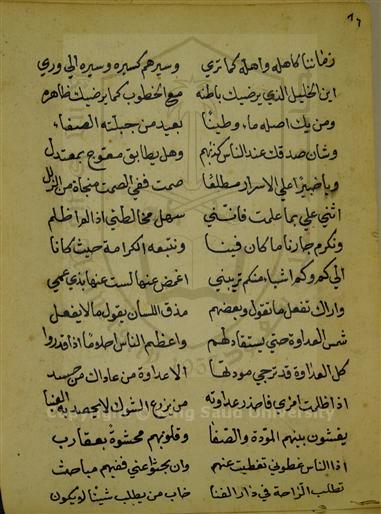 ٨٦
زماننا كاهله واهله كما تري وسيرهم كسيره وسيره الي وري
اين الخليل الذي يرضيك باطنه مع الخطوب كما يرضيك ظاهره
ومن يك اصله ماء وطينا بعيد من جبلته الصفاء
وشان صدقك عند الناس كذبهم وهل يطابق معوج بمعتدل
وياخبيرا علي الاسرار مطلقا صمت ففي الصمت منجاة من الزلل
اثني علي بما علمت فانني سهل مخالطتي اذا لم اظلم
ونكرم جارنا ما كان فينا ونتبعه الكرامة حيث كانا
الي كم وكم اشياء منكم تريبني اغمض عنها لست عنها بذي عمي
واراك تفعل ما تقول وبعضهم مذق اللسان يقول ما لا يفعل
شمس العداوة حتي يستقاد لهم واعظم الناس احلاما اذا قدروا
كل العداوة قد ترجي مودتها الا عداوة من عاداك من حسد
اذا ظلمت امرئ فاحذر عداوته من يزرع الشوك لا يحصد به العنبا
يفشون بينهم المودة والصفا وقلوبهم محشوة بعقارب
اذا الناس غطوني تغطيت عنهم وان بحثوا عني ففيهم مباحث
تطلب الراحة في دار الفنا خاب من يطلب شيئا لا يكون
King Saud University